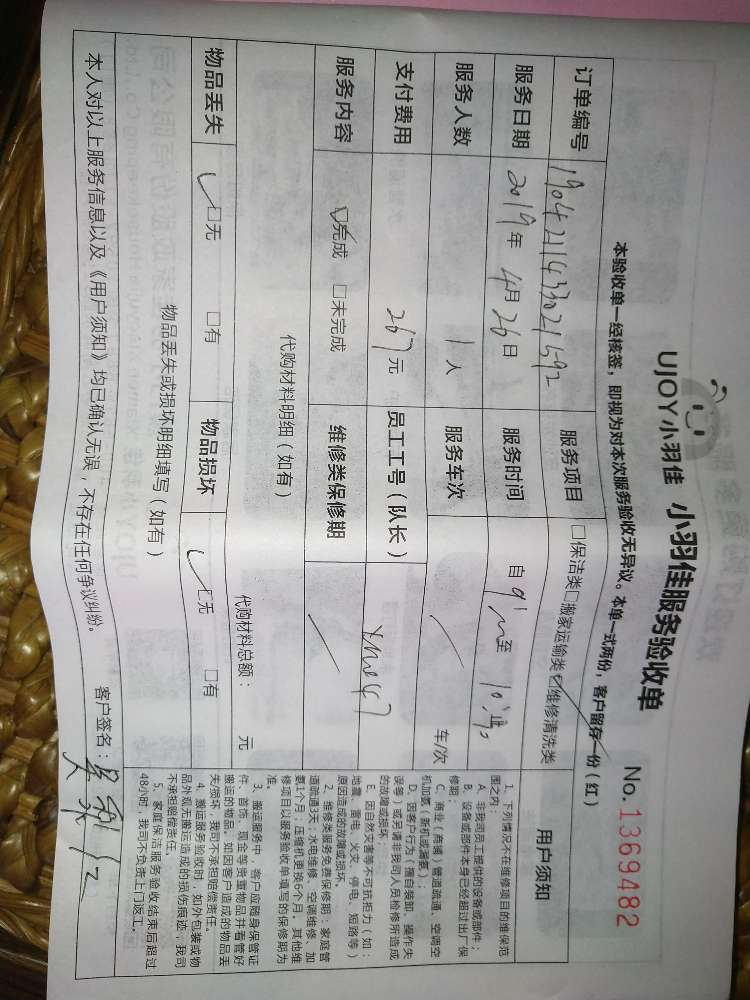 UJOY小羽佳 小羽佳服务验收单
No.1369482
本验收单一经核签，即视为对本次服务验收无异议。本单一式两份，客户留存一份（红）
订单编号 服务项目 □保洁类□搬家运输类☑维修清洗类
服务日期 2019年 4月26日 服务时间 自 至
服务人数 1人 服务车次 / 车/次
支付费用 267元 员工工号（队长）
服务内容 ☑完成 □未完成 维修类保修期 /
代购材料明细（如有） 代购材料总额： 元
物品丢失 ☑无 □有 物品损坏 ☑无 □有
物品丢失或损坏明细填写（如有）
本人对以上服务信息以及《用户须知》均已确认无误，不存在任何争议纠纷。
客户签名：
用户须知
1、下列情况不在维修项目的维保范
围之内：
A、非我司员工提供的设备或部件；
B、设备或部件本身已经超过出厂保
修期；
C、商业（商铺）管道疏通、空调空
机加氨，新机或漏氨）；
D、因客户行为（擅自装卸、操作失
误等）或另请非我司人员检修所造成
的故障或损坏；
E、因自然灾害等不可抗拒力（如：
地震、雷电、火灾、停电、短路等）
原因造成的故障或损坏。
2、维修类服务免费保修期：家庭管
道疏通3天；水电维修、空调维修、加
氨1个月；压缩机更换6个月，其他维
修项目以服务验收单填写的保修期为
准。
3、搬运服务中，客户应随身保管证
件、首饰、现金等贵重物品并看管好
搬运的物品，如因客户造成的物品丢
失/损坏，我司不承担赔偿责任。
4、搬运服务验收时，如外包装或物
品外观无搬运造成的损伤痕迹，我司
不承担赔偿责任。
5、家庭保洁服务验收结束后超过
48小时，我司不负责上门返工。